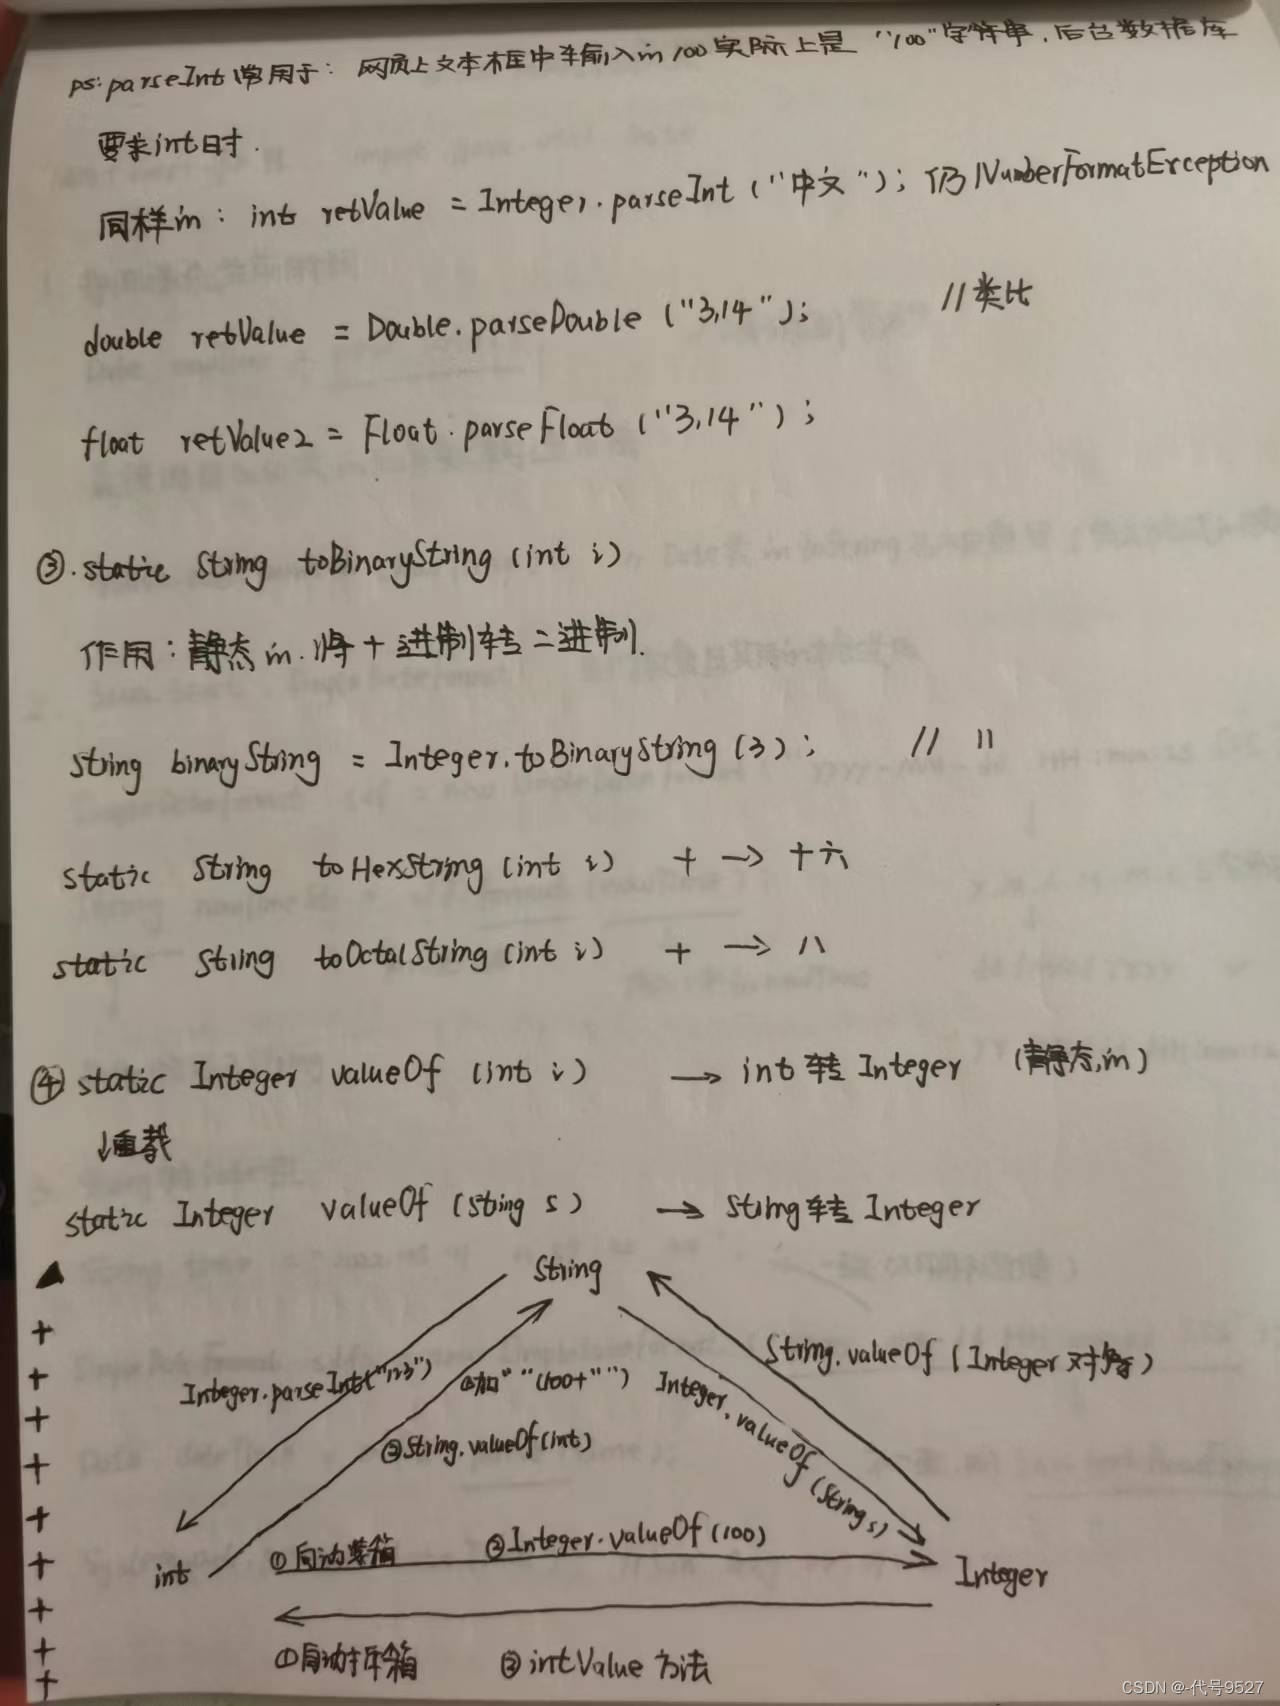 ps: parseInt常用于：网页上文本框中输入的100实际上是"100"字符串，后台数据库
要求int时.
同样的：int retValue = Integer.parseInt("中文"); 仍NumberFormatException
double retValue = Double.parseDouble("3.14"); //类比
float retValue2 = Float.parseFloat("3.14");
③. static String toBinaryString(int i)
作用：静态的.将十进制转二进制.
String binaryString = Integer.toBinaryString(3); // 11
static String toHexString(int i) 十→十六
static String toOctalString(int i) 十→八
④ static Integer valueOf(int i) → int转Integer (静态的)
↓重载
static Integer valueOf(String s) → String转Integer
String
String.valueOf(Integer对象)
Integer.parseInt("123") ①加" "(100+" ") Integer.valueOf(String s)
②String.valueOf(int)
①自动装箱 ②Integer.valueOf(100)
int Integer
①自动拆箱 ②intValue方法
CSDN @-代号9527